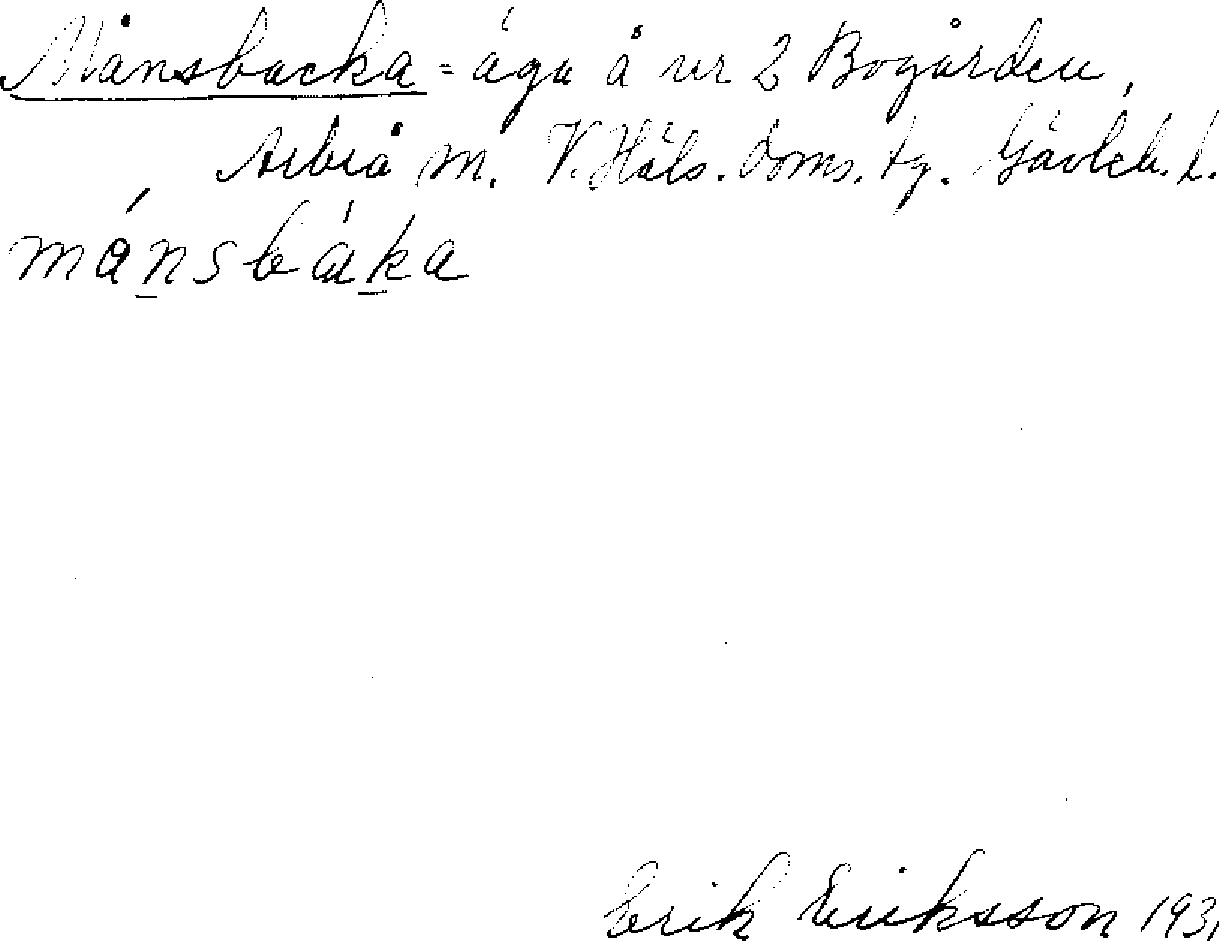 Månsbacka = äga å nr 2 Bogården,
Arbrå m. V. Häls. doms. tg. Gävleb. l.
månsbáka
Erik Eriksson 1931